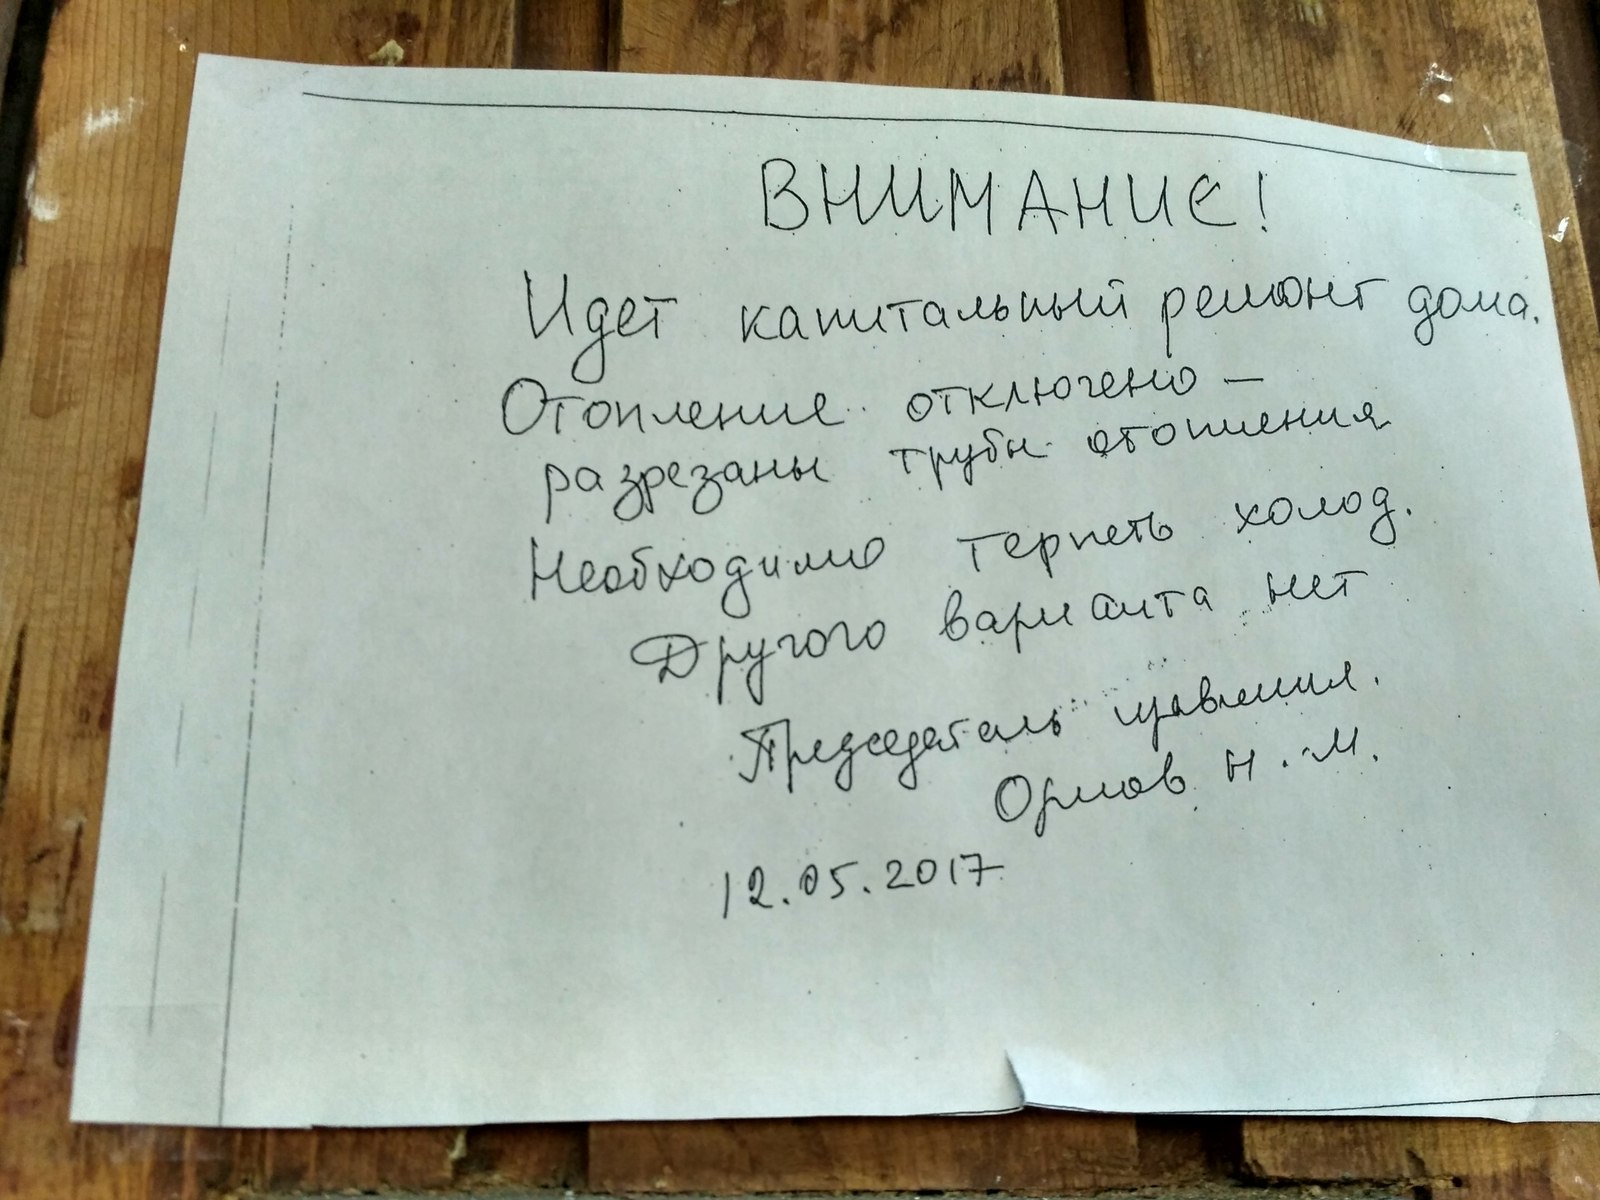 ВНИМАНИЕ!
Идет капитальный ремонт дома.
Отопление отключено –
разрезаны трубы отопления
Необходимо терпеть холод.
Другого варианта нет
Председатель правления.
Орлов Н.М.
12.05.2017